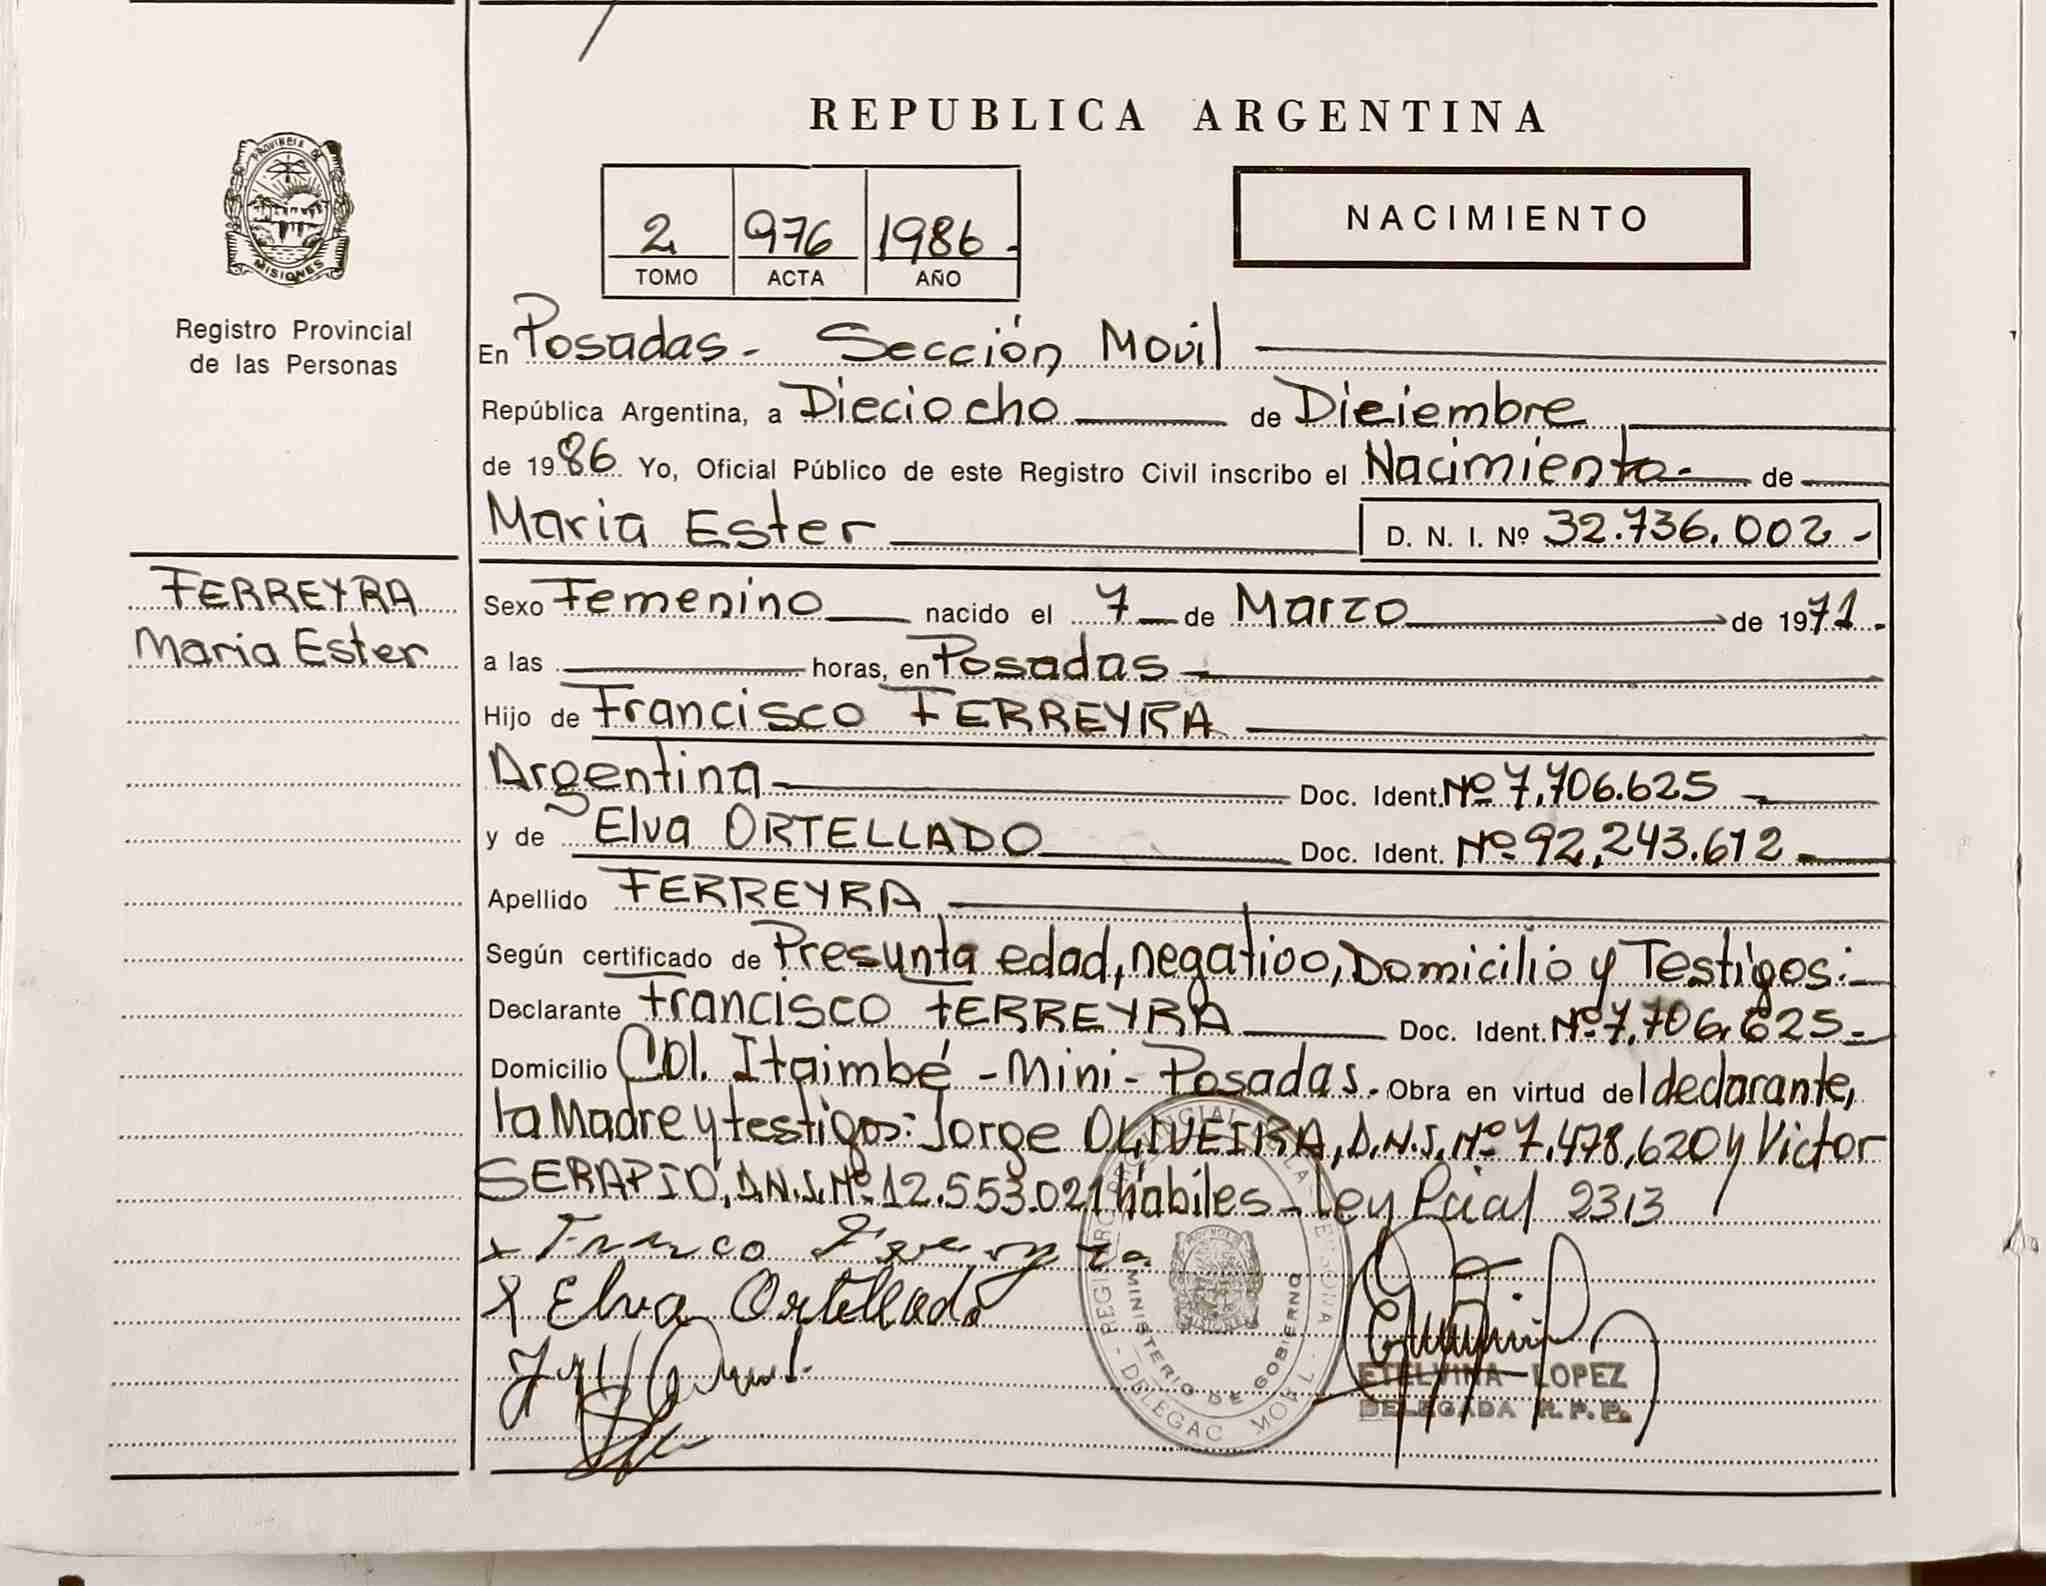 REPUBLICA ARGENTINA
PROVINCIA DE
MISIONES
Registro Provincial
de las Personas
2 976 1986.
TOMO ACTA AÑO
NACIMIENTO
En Posadas - Sección Movil
República Argentina, a Dieciocho de Diciembre
de 1986 Yo, Oficial Público de este Registro Civil inscribo el Nacimiento.- de
Maria Ester D. N. I. Nº 32.736.002.-
FERREYRA
Maria Ester
Sexo Femenino nacido el 7 de Marzo de 1971.
a las horas, en Posadas -
Hijo de Francisco FERREYRA
Argentina Doc. Ident. Nº 7.706.625
y de Elva ORTELLADO Doc. Ident. Nº 92,243.612
Apellido FERREYRA
Según certificado de Presunta edad, negativo, Domicilio y Testigos:-
Declarante Francisco FERREYRA Doc. Ident. Nº 7.706.625-
Domicilio Col. Itaimbé - Mini - Posadas. Obra en virtud del declarante,
la Madre y testigos: Jorge OLIVEIRA, D.N.I. Nº 7.478,620 y Victor
SERAPIO, D.N.I. Nº 12.553.021 hábiles - Ley Pcial 2313
x Franco Ferreyra
x Elva Ortellado
MINISTERIO DE GOBIERNO
ETELVINA LOPEZ
DELEGADA R.P.P.